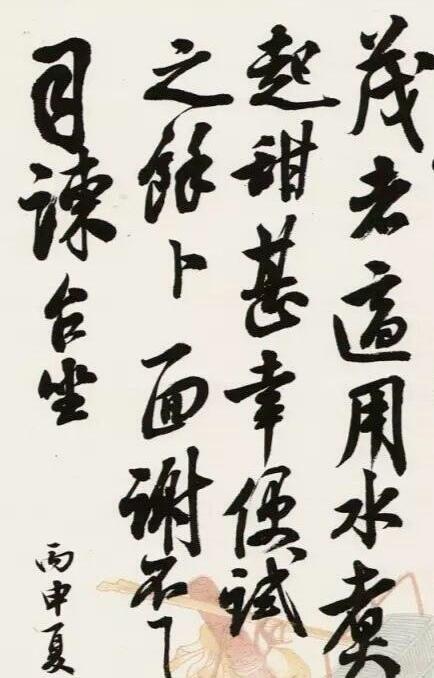 茂老適用水煮
起甜甚幸便試
之餘卜面謝不
司諫台坐
丙申夏